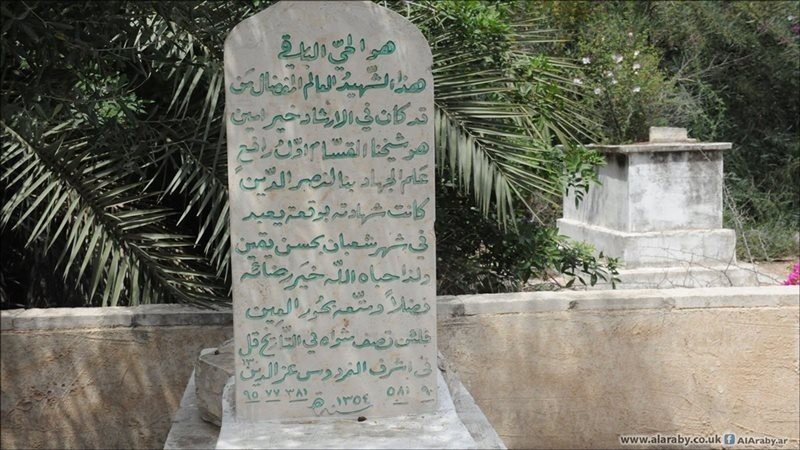 هو الحيّ الباقي
هذا الشّهيدُ العالم المفضال مَن
قد كان في الارشاد خير امين
هو شيخنا القسّام اوّل رافعٍ
علم الجهاد بنا لنصر الدّين
كانت شهادته بوقعة يعبد
في شهر شعبان بحسن يقين
ولذا حباه اللّه خير رضائه
فضلاً ومتّعه بحور العين
فلئن تصف مثواه في التّاريخ قل
في اشرف الفردوس عزّ الدين
٩٠ ٥٨١ ٣٨١ ٧٧ ٩٥
سنة ١٣٥٤ هـ
www.alaraby.co.uk AlAraby.ar